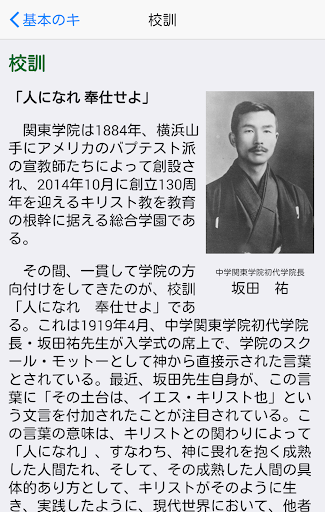 基本のキ
校訓
校訓
「人になれ 奉仕せよ」
関東学院は1884年、横浜山
手にアメリカのバプテスト派
の宣教師たちによって創設さ
れ、2014年10月に創立130周
年を迎えるキリスト教を教育
の根幹に据える総合学園であ
る。
中学関東学院初代学院長
坂田 祐
その間、一貫して学院の方
向付けをしてきたのが、校訓
「人になれ 奉仕せよ」であ
る。これは1919年4月、中学関東学院初代学院
長・坂田祐先生が入学式の席上で、学院のスク
ール・モットーとして神から直接示された言葉
とされている。最近、坂田先生自身が、この言
葉に「その土台は、イエス・キリスト也」とい
う文言を付加されたことが注目されている。こ
の言葉の意味は、キリストとの関わりによって
「人になれ」、すなわち、神に畏れを抱く成熟
した人間たれ、そして、その成熟した人間の具
体的あり方として、キリストがそのように生
き、実践したように、現代世界において、他者